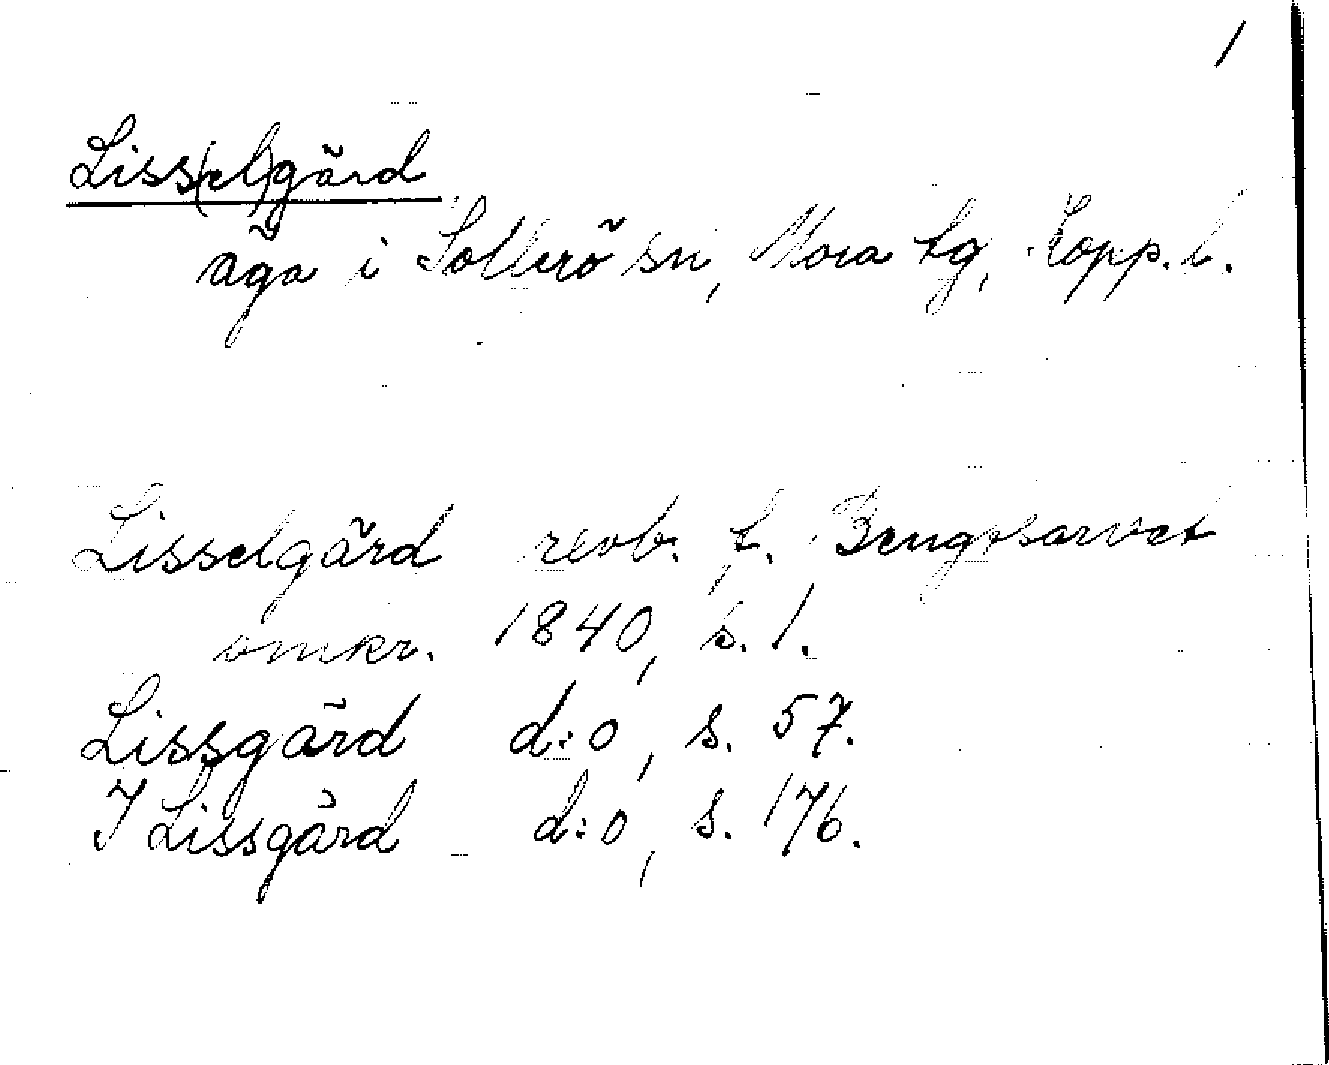 1
Liss(el)gård
äga i Sollerö sn, Mora tg, Kopp. l.
Lisselgård revb. f. Bengtsarvet
omkr. 1840, s. 1.
Lissgärd d:o, s. 57.
I Lissgård d:o, s. 176.